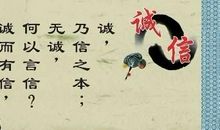 诚信
诚，
乃信之本；
无诚，
何以言信？
诚而有信，